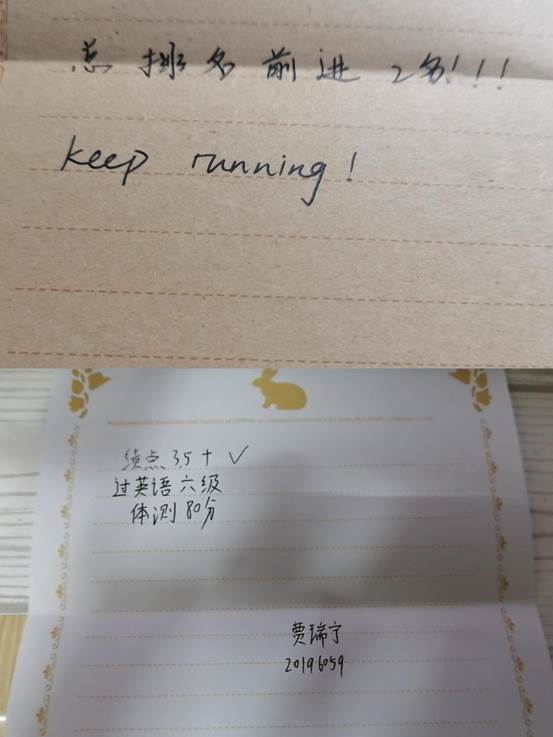 总排名前进2名!!!
keep running!
绩点 3.5+ ✓
过英语六级
体测 80分
贾瑞宁
20196059